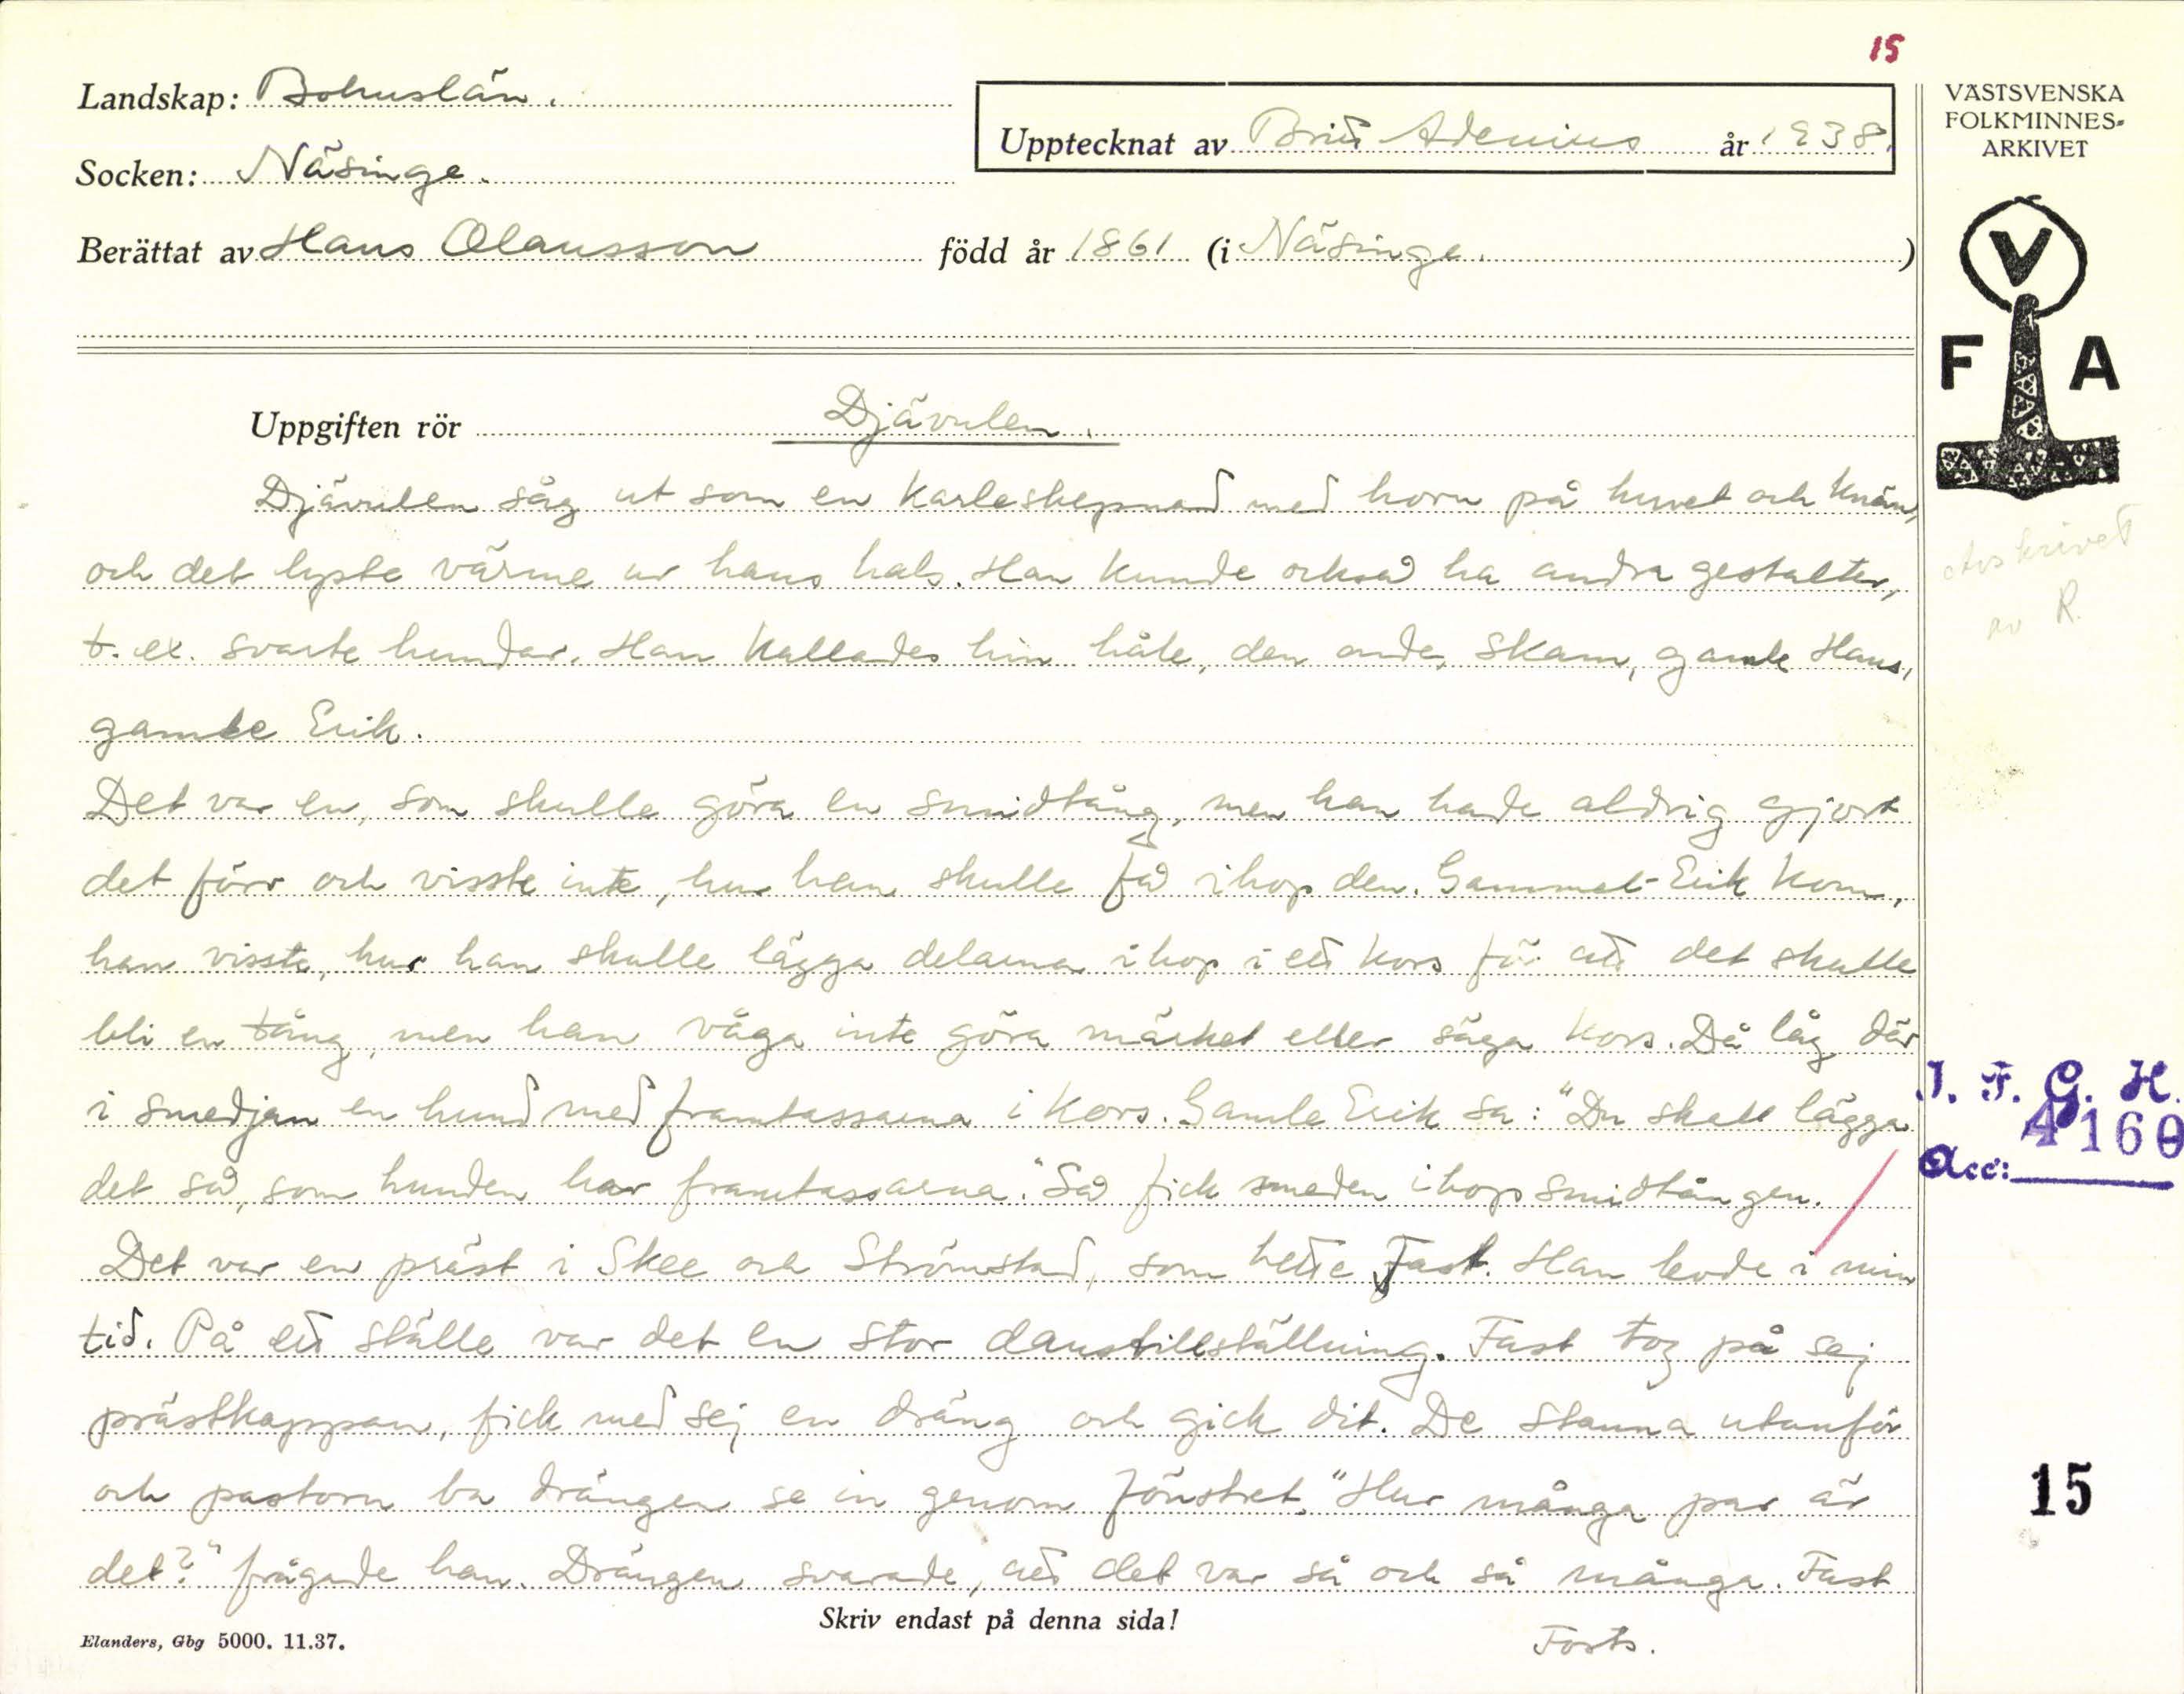 15
Landskap: Bohuslän.
Upptecknat av Brita Adenius år 1938.
Socken: Näsinge.
Berättat av Hans Olausson född år 1861 (i Näsinge.)
VÄSTSVENSKA
FOLKMINNES-
ARKIVET
V
F A
Uppgiften rör Djävulen.
Djävulen såg ut som en karleskepnad med horn på huvet och knän,
och det lyste värme ur hans hals. Han kunde också ha andra gestalter,
t. ex. svarte hundar. Han kallades hin håle, den onde, Skam, gamle Hans,
gamle Erik.
Det var en, som skulle göra en smidtång, men han hade aldrig gjort
det förr och visste inte, hur han skulle få ihop den. Gammel-Erik kom,
han visste, hur han skulle lägga delarna ihop i ett kors för att det skulle
bli en tång, men han våga inte göra märket eller säga kors. Då låg där
i smedjan en hund med framtassarna i kors. Gamle Erik sa: "Du skall lägga
det så, som hunden har framtassarna." Så fick smeden ihop smidtången.
Det var en präst i Skee och Strömstad, som hette Fast. Han levde i min
tid. På ett ställe var det en stor danstillställning. Fast tog på sej
prästkappan, fick med sej en dräng och gick dit. De stanna utanför
och pastorn ba drängen se in genom fönstret. "Hur många par är
det?" frågade han. Drängen svarade, att det var så och så många. Fast
Forts.
Skriv endast på denna sida!
Elanders, Gbg 5000. 11.37.
Avskrivet
av R.
I. F. G. H.
4160
Acc:
15